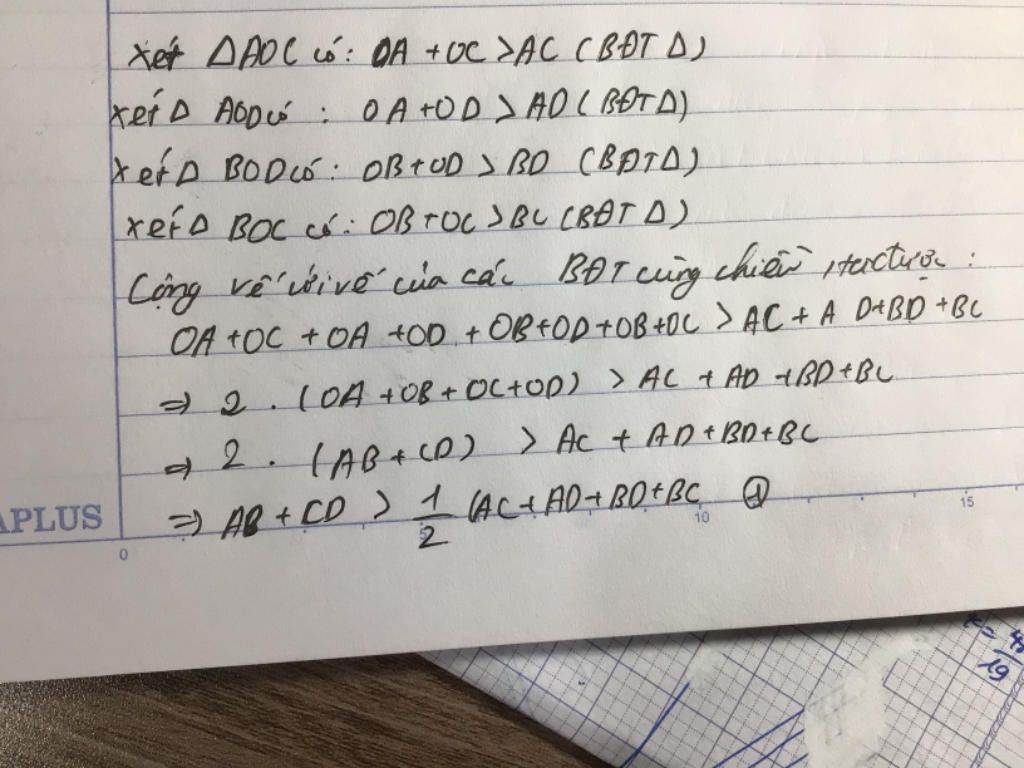 Xét ΔAOC có: OA + OC > AC (BĐT Δ)
Xét Δ AOD có : OA + OD > AD (BĐT Δ)
Xét Δ BOD có: OB + OD > BD (BĐT Δ)
Xét Δ BOC có: OB + OC > BC (BĐT Δ)
Cộng vế với vế của các BĐT cùng chiều, ta được:
OA + OC + OA + OD + OB + OD + OB + OC > AC + AD + BD + BC
⇒ 2 . (OA + OB + OC + OD) > AC + AD + BD + BC
⇒ 2 . (AB + CD) > AC + AD + BD + BC
⇒ AB + CD > 1/2 (AC + AD + BD + BC ①
APLUS
0 5 10 15
x = 4
19